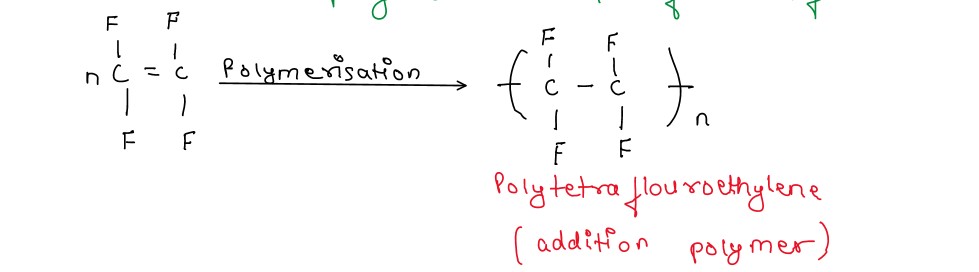 F F F F
n C = C Polymerisation ( C - C )n
F F F F
Polytetraflouroethylene
(addition polymer)